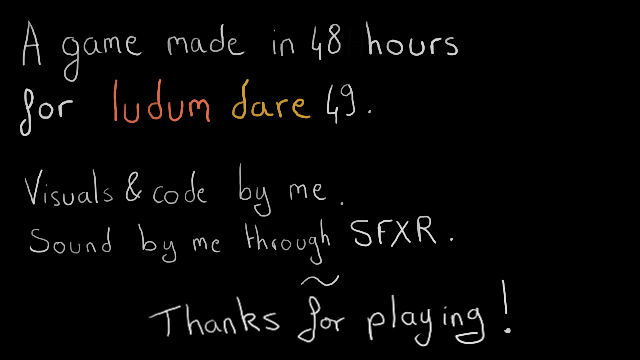 A game made in 48 hours
for ludum dare 49.
Visuals & code by me.
Sound by me through SFXR.
~
Thanks for playing!